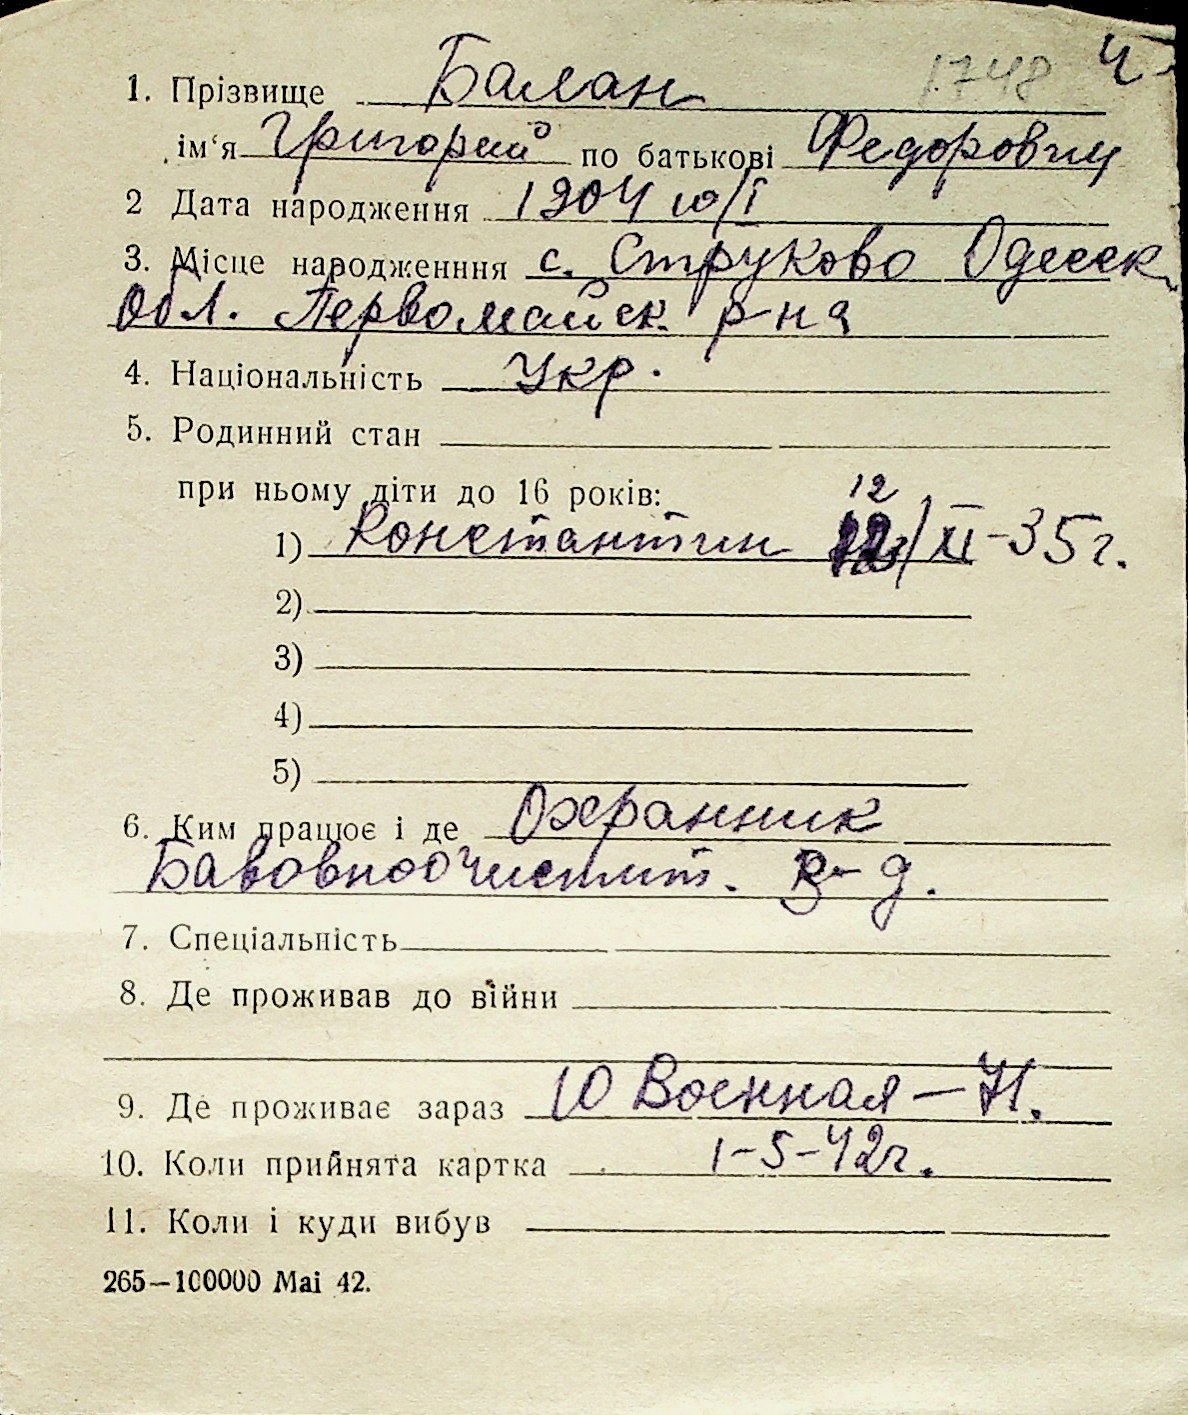 1748 4
1. Прізвище Балан
ім‘я Григорий по батькові Федорович
2 Дата народження 1904 10/I
3. Місце народженння с. Струково Одесск
Обл. Первомайск. р-на
4. Національність Укр.
5. Родинний стан
при ньому діти до 16 років:
12
1) Константин 12/XI-35г.
2)
3)
4)
5)
6. Ким працює і де Охранник
Бавовноочистит. З-д.
7. Спеціальність
8. Де проживав до війни
9. Де проживає зараз 10 Военная — 71.
10. Коли прийнята картка 1-5-42г.
11. Коли і куди вибув
265—100000 Mai 42.